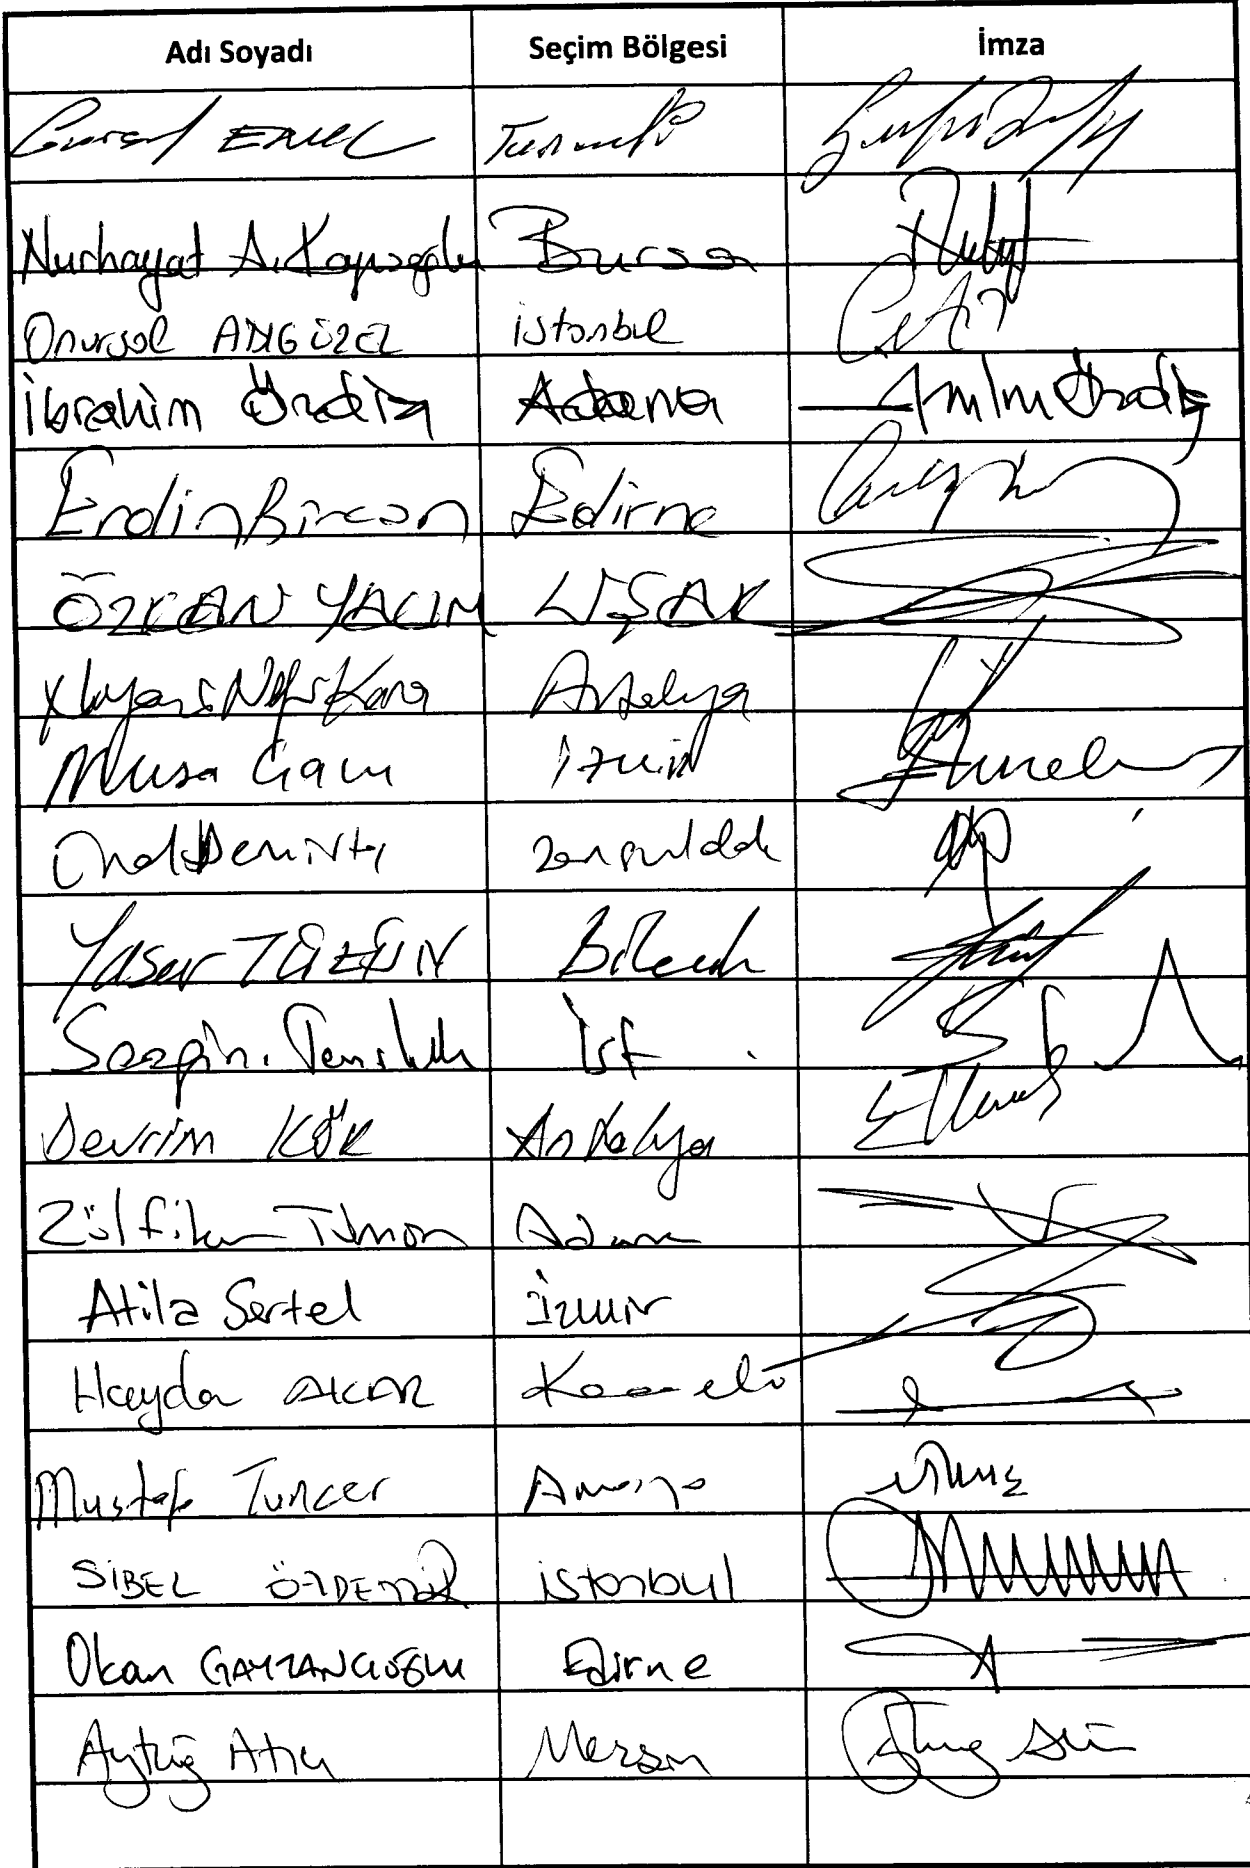 Adı Soyadı Seçim Bölgesi İmza
Gürsel EROL Tunceli
Nurhayat A. Kayışoğlu Bursa
Onursal ADIGÜZEL istanbul
İbrahim Özdiş Adana
Erdin Bircan Edirne
ÖZKAN YALIM UŞAK
Niyazi Nefi Kara Antalya
Musa Çam İzmir
Ünal Demirtaş Zonguldak
Yaşar TÜZÜN Bilecik
Sezgin Tanrıkulu İst.
Devrim KÖK Antalya
Zülfikar Tümer Adana
Atila Sertel İzmir
Haydar AKAR Kocaeli
Mustafa Tuncer Amasya
SİBEL ÖZDEMİR istanbul
Okan GAYTANCIOĞLU Edirne
Aytuğ Atıcı Mersin